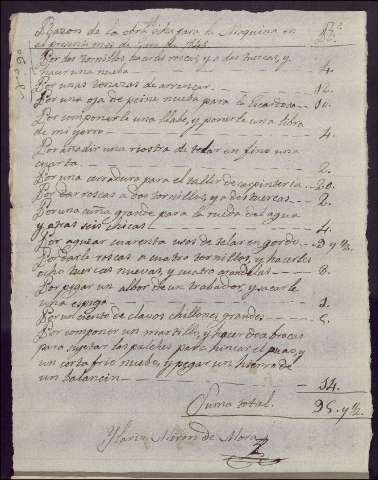 Razon de la obra echa para la Maquina en
el presente mes de de 1843.
Por dos tornillos hacerles roscas, y a dos tuercas, y
hacer una nueva 4.
Por unas tenazas de arrancar 12.
Por una oja de peine nueva para la
Por componerle una llabe, y ponerle una libra
de mi yerro 4.
Por añadir una riostra de telar en fino una
cuarta 2.
Por una cerradura para el taller de carpinteria 20.
Por dar roscas a dos tornillos, y a dos tuercas 2.
Por una cuña grande para la rueda del agua
y otras seis chicas 4.
Por aguzar cuarenta usos de telar en gordo 9 y ½.
Por darle roscas a cuatro tornillos, y hacerles
ocho tuercas nuevas, y cuatro 8.
Por pegar un albor de un trabador, y sacarle
una espiga
Por un ciento de clavos chillones grandes
Por componer un martillo, y hacer dos brocas
para sujetar los para hincar el y
un corta frio nuebo, y pegar un hierro de
un balancin 14.
Suma total. 95. y ½.
Ylario Miron de Mora